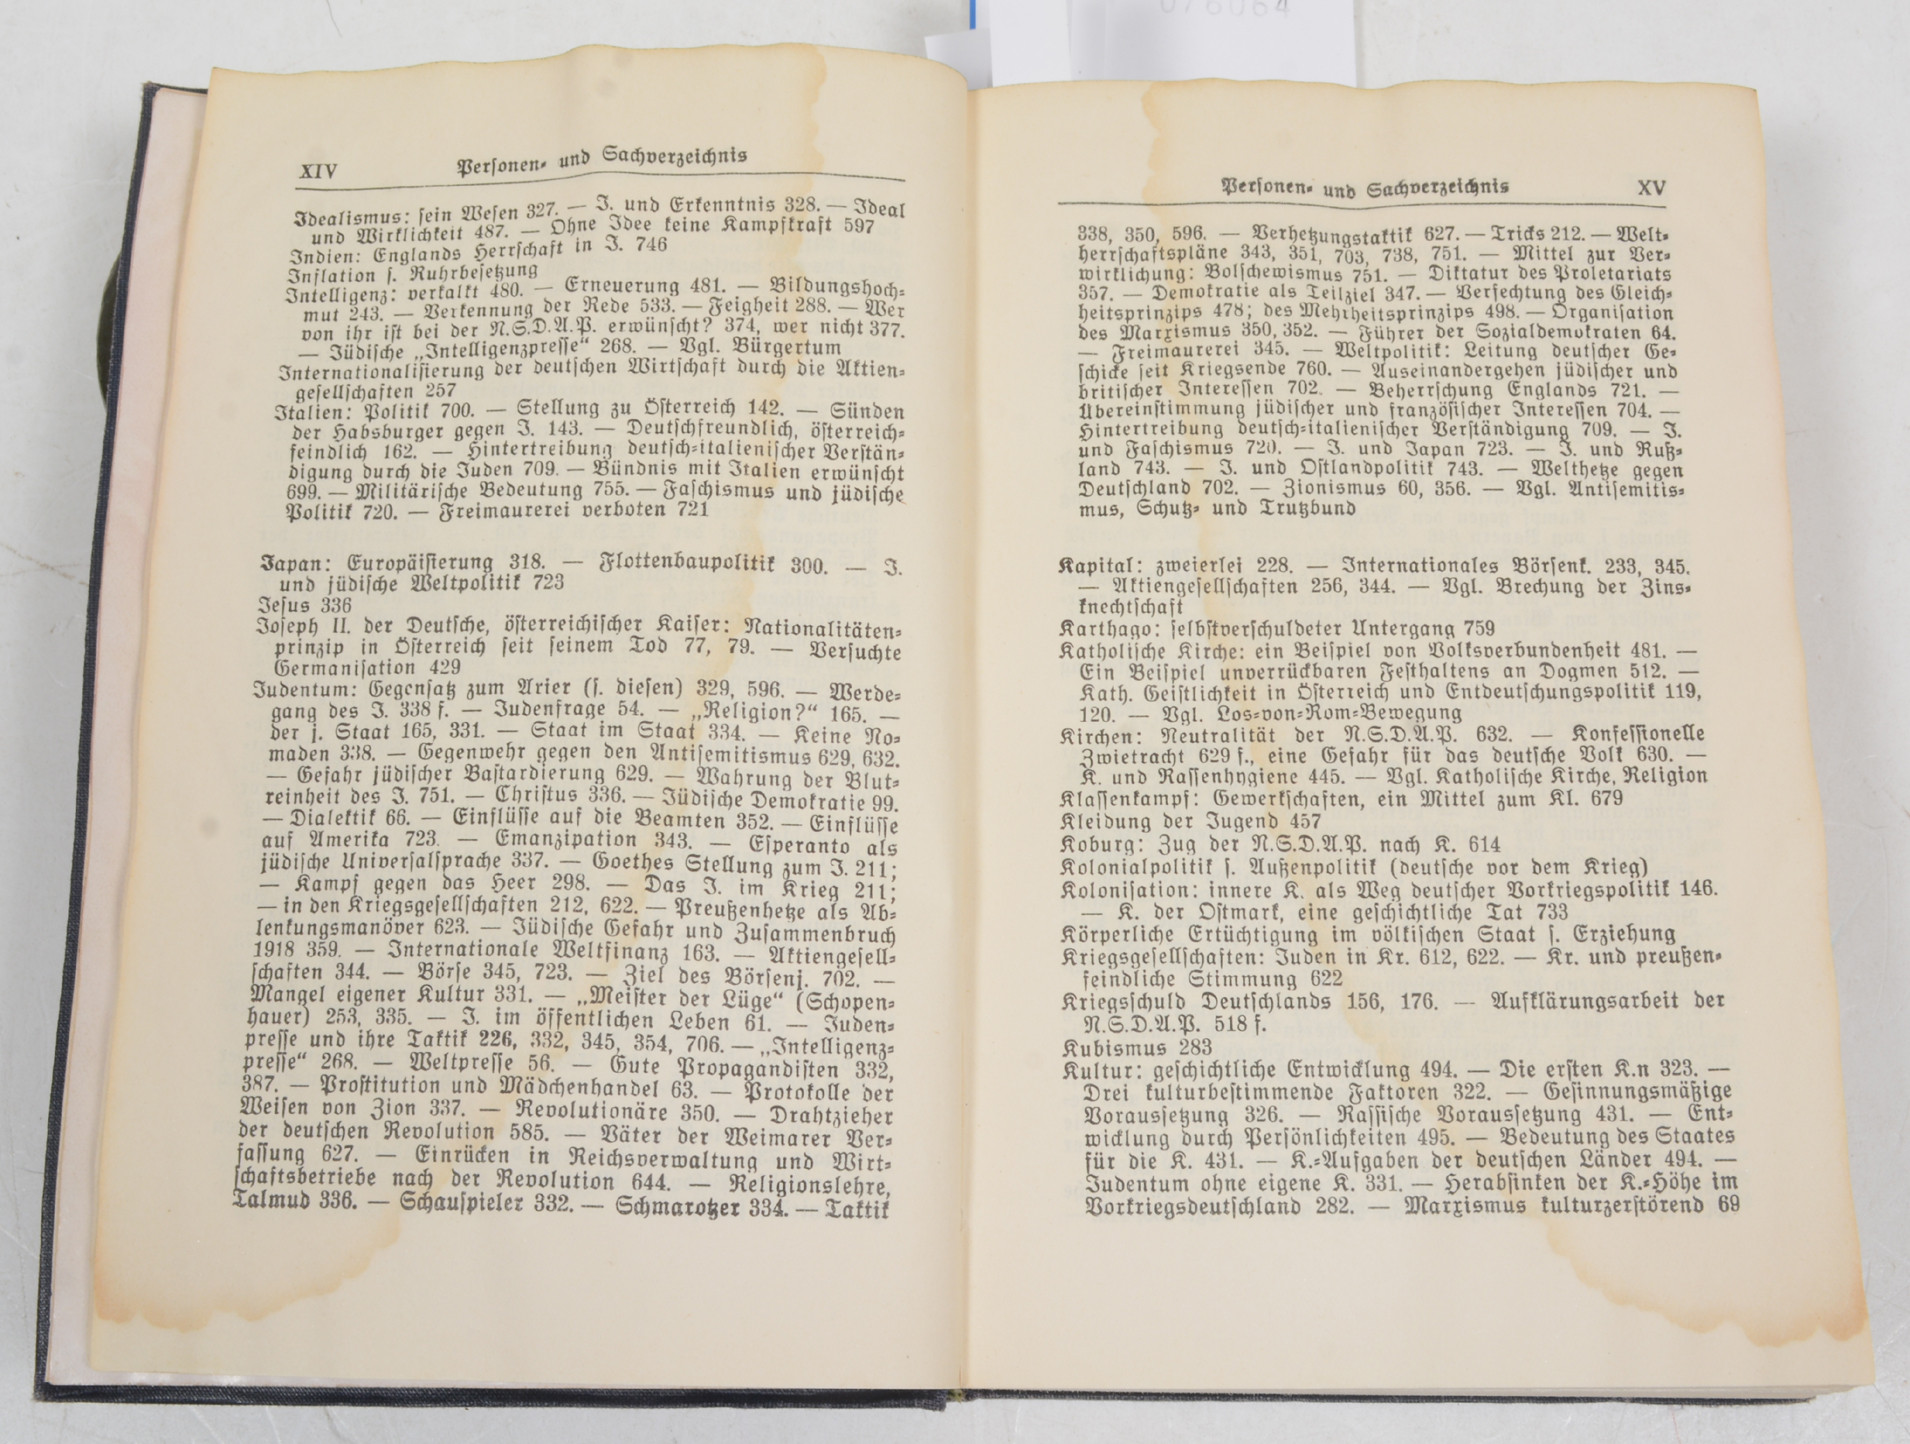 076064
XIV Personen- und Sachverzeichnis
Idealismus: sein Wesen 327. — I. und Erkenntnis 328. — Ideal
und Wirklichkeit 487. — Ohne Idee keine Kampfkraft 597
Indien: Englands Herrschaft in I. 746
Inflation s. Ruhrbesetzung
Intelligenz: verkalkt 480. — Erneuerung 481. — Bildungshoch-
mut 243. — Verkennung der Rede 533. — Feigheit 288. — Wer
von ihr ist bei der N.S.D.A.P. erwünscht? 374, wer nicht 377.
— Jüdische „Intelligenzpresse“ 268. — Vgl. Bürgertum
Internationalisierung der deutschen Wirtschaft durch die Aktien-
gesellschaften 257
Italien: Politik 700. — Stellung zu Österreich 142. — Sünden
der Habsburger gegen I. 143. — Deutschfreundlich, österreich-
feindlich 162. — Hintertreibung deutsch-italienischer Verstän-
digung durch die Juden 709. — Bündnis mit Italien erwünscht
699. — Militärische Bedeutung 755. — Faschismus und jüdische
Politik 720. — Freimaurerei verboten 721
Japan: Europäisierung 318. — Flottenbaupolitik 300. — J.
und jüdische Weltpolitik 723
Jesus 336
Joseph II. der Deutsche, österreichischer Kaiser: Nationalitäten-
prinzip in Österreich seit seinem Tod 77, 79. — Versuchte
Germanisation 429
Judentum: Gegensatz zum Arier (s. diesen) 329, 596. — Werde-
gang des J. 338 f. — Judenfrage 54. — „Religion?“ 165. —
der j. Staat 165, 331. — Staat im Staat 334. — Keine No-
maden 338. — Gegenwehr gegen den Antisemitismus 629, 632.
— Gefahr jüdischer Bastardierung 629. — Wahrung der Blut-
reinheit des J. 751. — Christus 336. — Jüdische Demokratie 99.
— Dialektik 66. — Einflüsse auf die Beamten 352. — Einflüsse
auf Amerika 723. — Emanzipation 343. — Esperanto als
jüdische Universalsprache 337. — Goethes Stellung zum J. 211;
— Kampf gegen das Heer 298. — Das J. im Krieg 211;
— in den Kriegsgesellschaften 212, 622. — Preußenhetze als Ab-
lenkungsmanöver 623. — Jüdische Gefahr und Zusammenbruch
1918 359. — Internationale Weltfinanz 163. — Aktiengesell-
schaften 344. — Börse 345, 723. — Ziel des Börsenj. 702. —
Mangel eigener Kultur 331. — „Meister der Lüge“ (Schopen-
hauer) 253, 335. — J. im öffentlichen Leben 61. — Juden-
presse und ihre Taktik 226, 332, 345, 354, 706. — „Intelligenz-
presse“ 268. — Weltpresse 56. — Gute Propagandisten 332,
387. — Prostitution und Mädchenhandel 63. — Protokolle der
Weisen von Zion 337. — Revolutionäre 350. — Drahtzieher
der deutschen Revolution 585. — Väter der Weimarer Ver-
fassung 627. — Einrücken in Reichsverwaltung und Wirt-
schaftsbetriebe nach der Revolution 644. — Religionslehre,
Talmud 336. — Schauspieler 332. — Schmarotzer 334. — Taktik
Personen- und Sachverzeichnis XV
338, 350, 596. — Verhetzungstaktik 627. — Tricks 212. — Welt-
herrschaftspläne 343, 351, 703, 738, 751. — Mittel zur Ver-
wirklichung: Bolschewismus 751. — Diktatur des Proletariats
357. — Demokratie als Teilziel 347. — Verfechtung des Gleich-
heitsprinzips 478; des Mehrheitsprinzips 498. — Organisation
des Marxismus 350, 352. — Führer der Sozialdemokraten 64.
— Freimaurerei 345. — Weltpolitik: Leitung deutscher Ge-
schicke seit Kriegsende 760. — Auseinandergehen jüdischer und
britischer Interessen 702. — Beherrschung Englands 721. —
Übereinstimmung jüdischer und französischer Interessen 704. —
Hintertreibung deutsch-italienischer Verständigung 709. — J.
und Faschismus 720. — J. und Japan 723. — J. und Ruß-
land 743. — J. und Ostlandpolitik 743. — Welthetze gegen
Deutschland 702. — Zionismus 60, 356. — Vgl. Antisemitis-
mus, Schutz- und Trutzbund
Kapital: zweierlei 228. — Internationales Börsenk. 233, 345.
— Aktiengesellschaften 256, 344. — Vgl. Brechung der Zins-
knechtschaft
Karthago: selbstverschuldeter Untergang 759
Katholische Kirche: ein Beispiel von Volksverbundenheit 481. —
Ein Beispiel unverrückbaren Festhaltens an Dogmen 512. —
Kath. Geistlichkeit in Österreich und Entdeutschungspolitik 119,
120. — Vgl. Los-von-Rom-Bewegung
Kirchen: Neutralität der N.S.D.A.P. 632. — Konfessionelle
Zwietracht 629 f., eine Gefahr für das deutsche Volk 630. —
K. und Rassenhygiene 445. — Vgl. Katholische Kirche, Religion
Klassenkampf: Gewerkschaften, ein Mittel zum Kl. 679
Kleidung der Jugend 457
Koburg: Zug der N.S.D.A.P. nach K. 614
Kolonialpolitik s. Außenpolitik (deutsche vor dem Krieg)
Kolonisation: innere K. als Weg deutscher Vorkriegspolitik 146.
— K. der Ostmark, eine geschichtliche Tat 733
Körperliche Ertüchtigung im völkischen Staat s. Erziehung
Kriegsgesellschaften: Juden in Kr. 612, 622. — Kr. und preußen-
feindliche Stimmung 622
Kriegsschuld Deutschlands 156, 176. — Aufklärungsarbeit der
N.S.D.A.P. 518 f.
Kubismus 283
Kultur: geschichtliche Entwicklung 494. — Die ersten K.n 323. —
Drei kulturbestimmende Faktoren 322. — Gesinnungsmäßige
Voraussetzung 326. — Rassische Voraussetzung 431. — Ent-
wicklung durch Persönlichkeiten 495. — Bedeutung des Staates
für die K. 431. — K.-Aufgaben der deutschen Länder 494. —
Judentum ohne eigene K. 331. — Herabsinken der K.-Höhe im
Vorkriegsdeutschland 282. — Marxismus kulturzerstörend 69